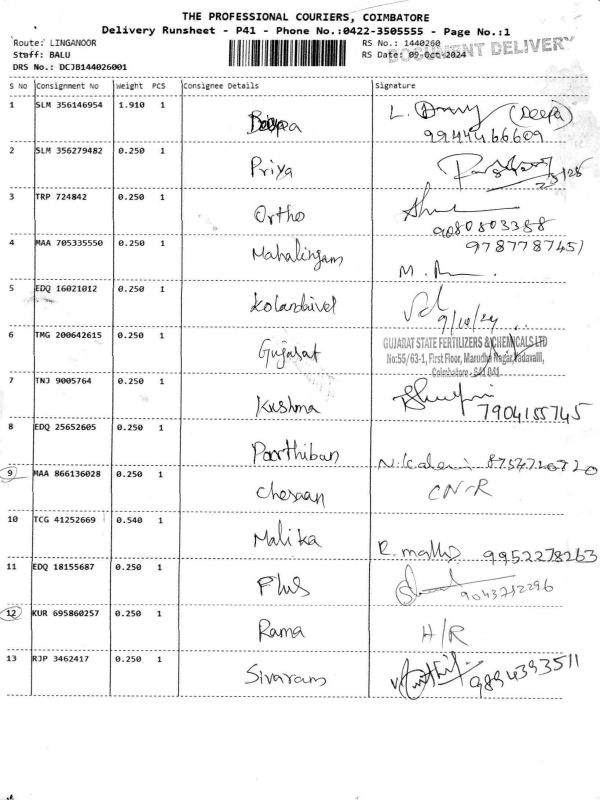 THE PROFESSIONAL COURIERS, COIMBATORE
Delivery Runsheet - P41 - Phone No.:0422-3505555 - Page No.:1
Route: LINGANOOR RS No.: 1440260
Staff: BALU RS Date: 09-Oct-2024
DOCUMENT DELIVERY
DRS No.: DCJB144026001
S No Consignment No Weight PCS Consignee Details Signature
1 SLM 356146954 1.910 1 Deepa L. (Deepa)
9944466609
2 SLM 356279482 0.250 1 Priya
3 TRP 724842 0.250 1 Ortho
9080803388
4 MAA 705335550 0.250 1 Mahalingam 9787787451
M.
5 EDQ 16021012 0.250 1 Kolandaivel
9/10/24
6 TMG 200642615 0.250 1 Gujarat GUJARAT STATE FERTILIZERS & CHEMICALS LTD
No:55/63-1, First Floor, Marudha Nagar, Vadavalli,
Coimbatore - 641 041
7 TNJ 9005764 0.250 1 Kushma 7904155745
8 EDQ 25652605 0.250 1 Parthiban N. 8754720720
9 MAA 866136028 0.250 1 Chesaan CN-R
10 TCG 41252669 0.540 1 Malika R. 9952278263
11 EDQ 18155687 0.250 1 Plus 9043712296
12 KUR 695860257 0.250 1 Rama H/R
13 RJP 3462417 0.250 1 Sivaram 9894393511